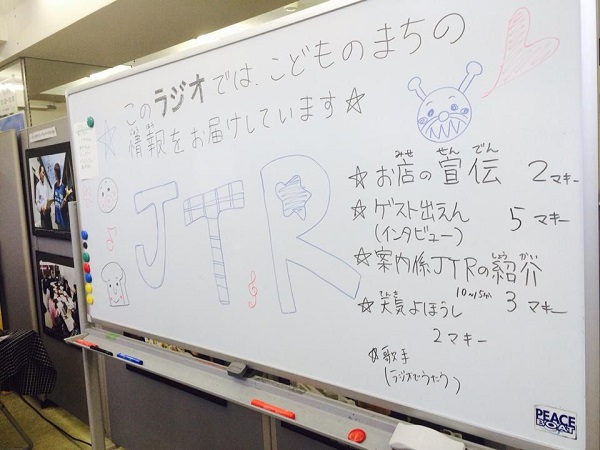 このラジオでは、こどものまちの
☆情報をお届けしています☆
JTR
☆お店の宣伝 2マキー
みせ せんでん
☆ゲスト出えん 5マキー
(インタビュー)
☆案内係JTRの紹介
しょうかい
☆天気よほうし 3マキー
てんき
2マキー
☆歌手
(ラジオでうたう)
PEACE
BOAT